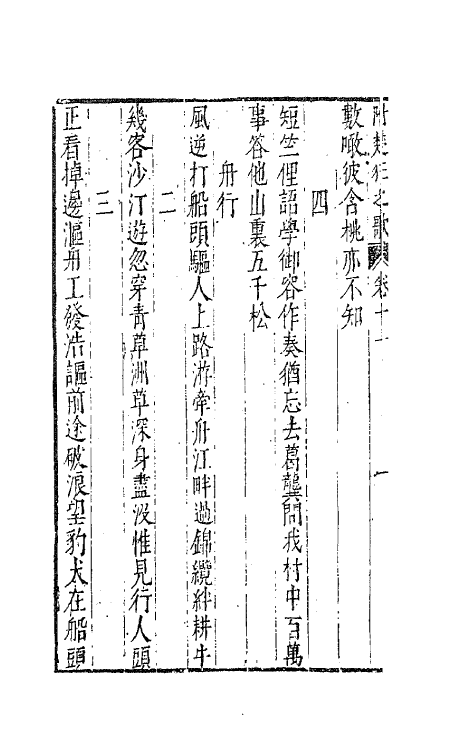 附楚狂之歌 卷十一 一
數噉彼含桃亦不知
四
短竺俚謟學御容作奏猶忘去葛龔問我村中百萬
事答他山裏五千松
舟行
風逆打船頭驅人上路游牽舟江畔過錦纜絆耕牛
二
幾客沙汀遊忽穿青草洲草深身盡没惟見行人頭
三
正看掉邊漚舟工發浩謳前途破浪望豹犬在船頭